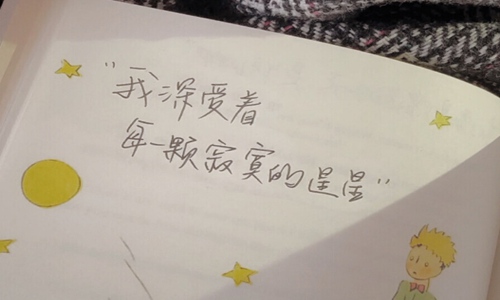 "我深受着
每一颗寂寞的星星"